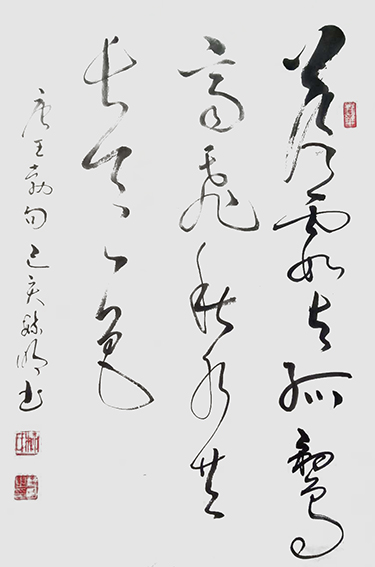 落霞与孤鹜
齊飛秋水共
長天一色
唐王勃句 己亥 书